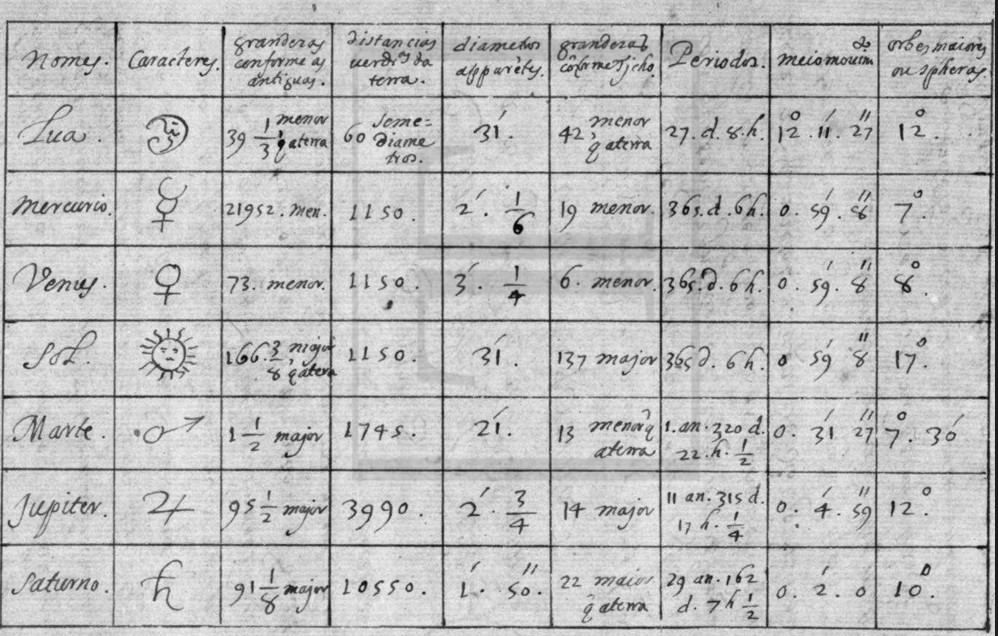 Nomes. Caracteres. granderas conforme as antiguas. distancias verdrᵃˢ da terra. diametos apparẽtes. granderas cõforme Tjcho. Periodos. meio mouimᵗᵒ orbes maiores ou spheras.
Lua. ☽ 39 1/3 menor q̃ aterra 60 seme=diametros. 31'. 42 menor q̃ aterra 27. d. 8. h. 12° . 11' . 27'' 12°.
Mercurio. ☿ 21952. men. 1150. 2'. 1/6 19 menor. 365. d. 6h. 0. 59' . 8'' 7°.
Venus. ♀ 73. menor. 1150. 3'. 1/4 6. menor. 365. d. 6h. 0. 59' . 8'' 8°.
Sol. ☉ 166. 3/8 major q̃ aterra 1150. 31'. 137 major 365 d. 6h. 0 59' 8'' 17°.
Marte. ♂ 1 1/2 major 1745. 21'. 13 menor q̃ aterra 1. an. 320 d. 22. h. 1/2 0. 31' 27'' 7°. 30'
Jupiter. ♃ 95 1/2 major 3990. 2'. 3/4 14 major 11 an. 315 d. 17 h. 1/4 0. 4'. 59'' 12°.
Saturno. ♄ 91 1/8 major 10550. 1'. 50''. 22 maior q̃ aterra 29 an. 162 d. 7 h 1/2 0. 2'. 0 10°.